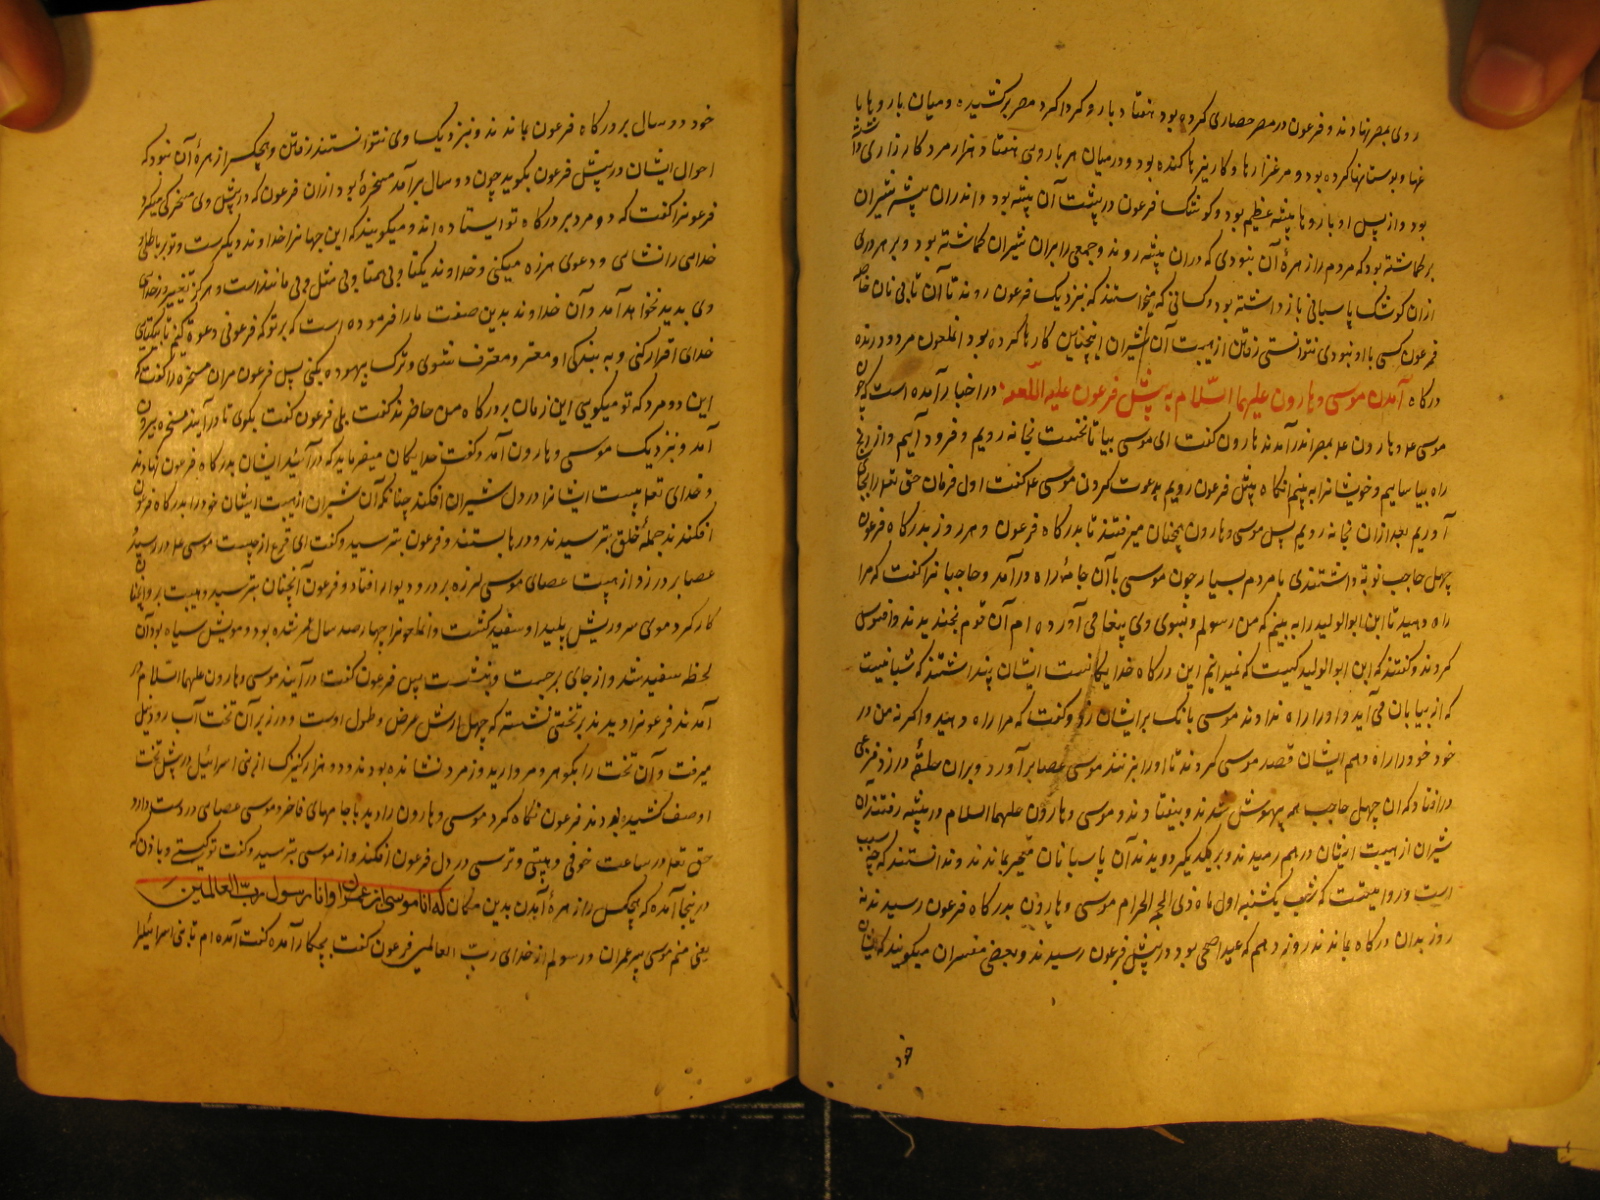 روی بمصر نهادند و فرعون در مصر حصاری کرده بود هفتاد بارو کرداکرد مصر برکشیده و میان باروها با
غها و بوستانها کرده بود و مرغزارها و کاریزها کنده بود و در میان هر باروی هفتاد هزار مرد کارزاری
بود و از پس او باروها بیشه عظیم بود و کوشک فرعون در پشت آن بیشه بود و اندران بیشه شیران
برکماشته بود که مردم را زهرهٔ آن نبودی که دران بیشه روند و جمعی را بران شیران کماشته بود و بر هر دری
ازان کوشک پاسبانی بازداشته بود و کسانی که میخواستند که بنزدیک فرعون روند تا آن
فرعون کسی با او نبودی نتوانستی رفتن از هیبت آن شیران اینچنین کارها کرده بود آن ملعون مردود رنده
درکاه آمدن موسی و هارون علیهما السّلام به پیش فرعون علیه اللّعنه در اخبار آمده است که چون
موسی ع و هارون ع بمصر اندر آمدند هارون کفت ای موسی بیا تا نخست بخانه رویم و فرود آییم و از رنج
راه بیاساییم و خویشانرا به بینیم آنکاه پیش فرعون رویم بدعوت کردن موسی ع کفت اول فرمان حق تعم را بجای
آوریم بعد ازان بخانه رویم پس موسی و هارون همچنان میرفتند تا بدرکاه فرعون و هر روز بدرکاه فرعون
چهل حاجب نوبة داشتندی با مردم بسیار چون موسی با آن جامهٔ راه درآمد و حاجبانرا کفت که مرا
راه دهید تا این ابوالولید را به بینم که من رسولم و بسوی وی پیغامی آورده ام آن قوم بخندیدند و افسوس
کردند و کفتند که این ابوالولید کیست که نمیدانیم این درکاه خدایکانست ایشان پنداشتند که شبانیست
که از بیابان می آید و او را راه ندادند موسی بانک برایشان زد و کفت که مرا راه دهید و اکر نه من در
خود خود را راه دهم ایشان قصد موسی کردند تا او را بزنند موسی عصا برآورد و بران حلقهٔ در زد فزعی
درافتاد که آن چهل حاجب همه بیهوش شدند و بیفتادند و موسی و هارون علیهما السلام در بیشه رفتند آن
شیران از هیبت ایشان درهم رمیدند و بر یکدیکر دویدند آن پاسبانان متحیر بماندند و ندانستند که چه سبب
است و روایتست که شب یکشنبه اول ماه ذی الحجه الحرام موسی و هارون بدرکاه فرعون رسیدند نه
روز بدان درکاه بماندند روز دهم که عید اضحی بود در پیش فرعون رسیدند و بعضی مفسران میکویند که ایشان
خود
خود دو سال بر درکاه فرعون بماندند و بنزدیک وی نتوانستند رفتن و هیچکس را زهرهٔ آن نبود که
احوال ایشان در پیش فرعون بکوید چون دو سال برآمد مسخرهٔ بود ازان فرعون که در پیش وی مسخرکی میکرد
فرعونرا کفت که دو مرد بر درکاه تو ایستاده اند و میکویند که این جهانرا خداوند دیکرست و تو بر باطلی و
خدای را نشناسی و دعوی هرزه میکنی و خداوند یکتا و بی همتا و بی مثل و بی مانند است و هرکز تغییر در خدایی
وی پدید نخواهد آمد و آن خداوند بدین صفت ما را فرموده است که بر تو که فرعونی دعوة کنیم تا بیکتایی
خدای اقرار کنی و به بندکی او مقر و معترف شوی و ترک بیهوده بکنی پس فرعون مران مسخره را کفت که
این دو مرد که تو میکویی این زمان بر درکاه من حاضرند کفت بلی فرعون کفت بکوی تا درآیند مسخره بیرون
آمد و بنزدیک موسی و هارون آمد و کفت خدایکان میفرماید که درآئید ایشان بدرکاه فرعون نهادند
و خدای تعم هیبت ایشانرا در دل شیران افکند چنانکه آن شیران از هیبت ایشان خود را بدرکاه فرعون
افکندند جملهٔ خلق بترسیدند و درها بستند و فرعون بترسید و کفت ای فزع از چیست موسی ع در رسید و
عصا بر در زد از هیبت عصای موسی لرزه بر در و دیوار افتاد و فرعون آنچنان بترسید و هیبت بر وی چنان
کار کرد موی سر و ریش پلید او سفید کشت و آن ملعونرا چهارصد سال عمر شده بود و مویش سیاه بود آن
لحظه سفید شد و از جای برجست و بنشست پس فرعون کفت درآیند موسی و هارون علیهما السلام در
آمدند فرعونرا دیدند بر تختی نشسته که چهل ارش عرض و طول اوست و در زیر آن تخت آب رود نیل
میرفت و آن تخت را بکوهر و مروارید و زمرد نشانده بودند و دو هزار کنیزک از بنی اسرائیل در پیش تخت
او صف کشیده بودند فرعون نکاه کرد موسی و هارون را دید با جامهای فاخر و موسی عصای در دست دارد
حق تعم در ساعت خوفی و هیبتی و ترسی در دل فرعون افکند و از موسی بترسید و کفت تو کیستی و باذن که
درینجا آمدهٔ که هیچکس را زهرهٔ آمدن بدین مکان که انا موسی ابن عمران و انا رسول رب العالمین
یعنی منم موسی پسر عمران و رسولم از خدای ربّ العالمین فرعون کفت بچکار آمدهٔ کفت آمده ام تا بنی اسرائیلرا